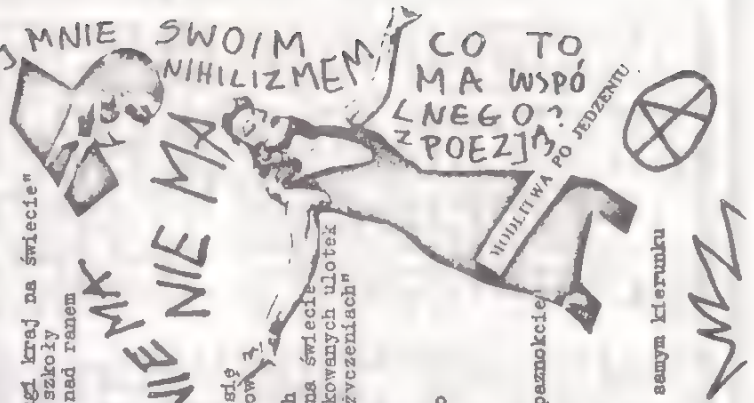 J MNIE SWOIM
NIHILIZMEM
CO TO
MA WSPÓ
LNEGO?
Z POEZJĄ
MODLITWA PO JEDZENIU
NIE MA
NIE MA
gi kraj na świecie"
szkoły
nad ranem
się
ow
h
na świecie
kowanych ulotek
życzeniach"
o
paznokcie
samym kierunku